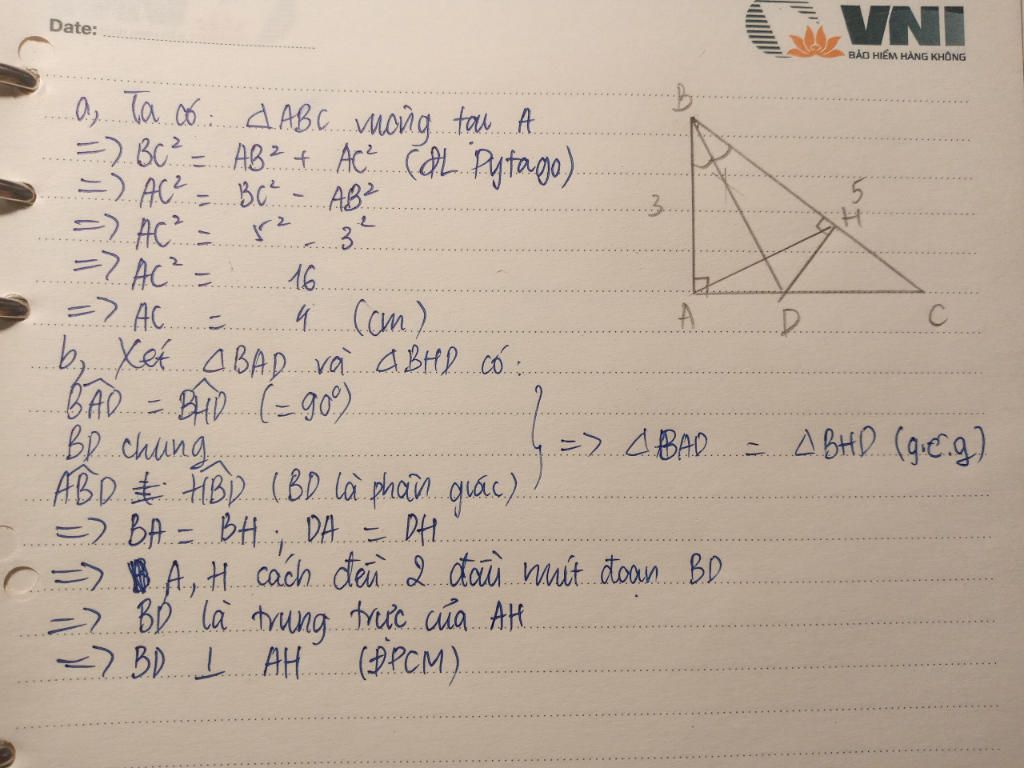 Date:
VNI
BẢO HIỂM HÀNG KHÔNG
a, Ta có: △ABC vuông tại A
=> BC² = AB² + AC² (ĐL Pytago)
=> AC² = BC² - AB²
=> AC² = 5² - 3²
=> AC² = 16
=> AC = 4 (cm)
b, Xét △BAD và △BHD có:
BAD = BHD (=90°)
BD chung
ABD = HBD (BD là phân giác)
=> △BAD = △BHD (g.c.g)
=> BA = BH ; DA = DH
=> A, H cách đều 2 đầu mút đoạn BD
=> BD là trung trực của AH
=> BD ⊥ AH (ĐPCM)
B
3
5
H
A
D
C